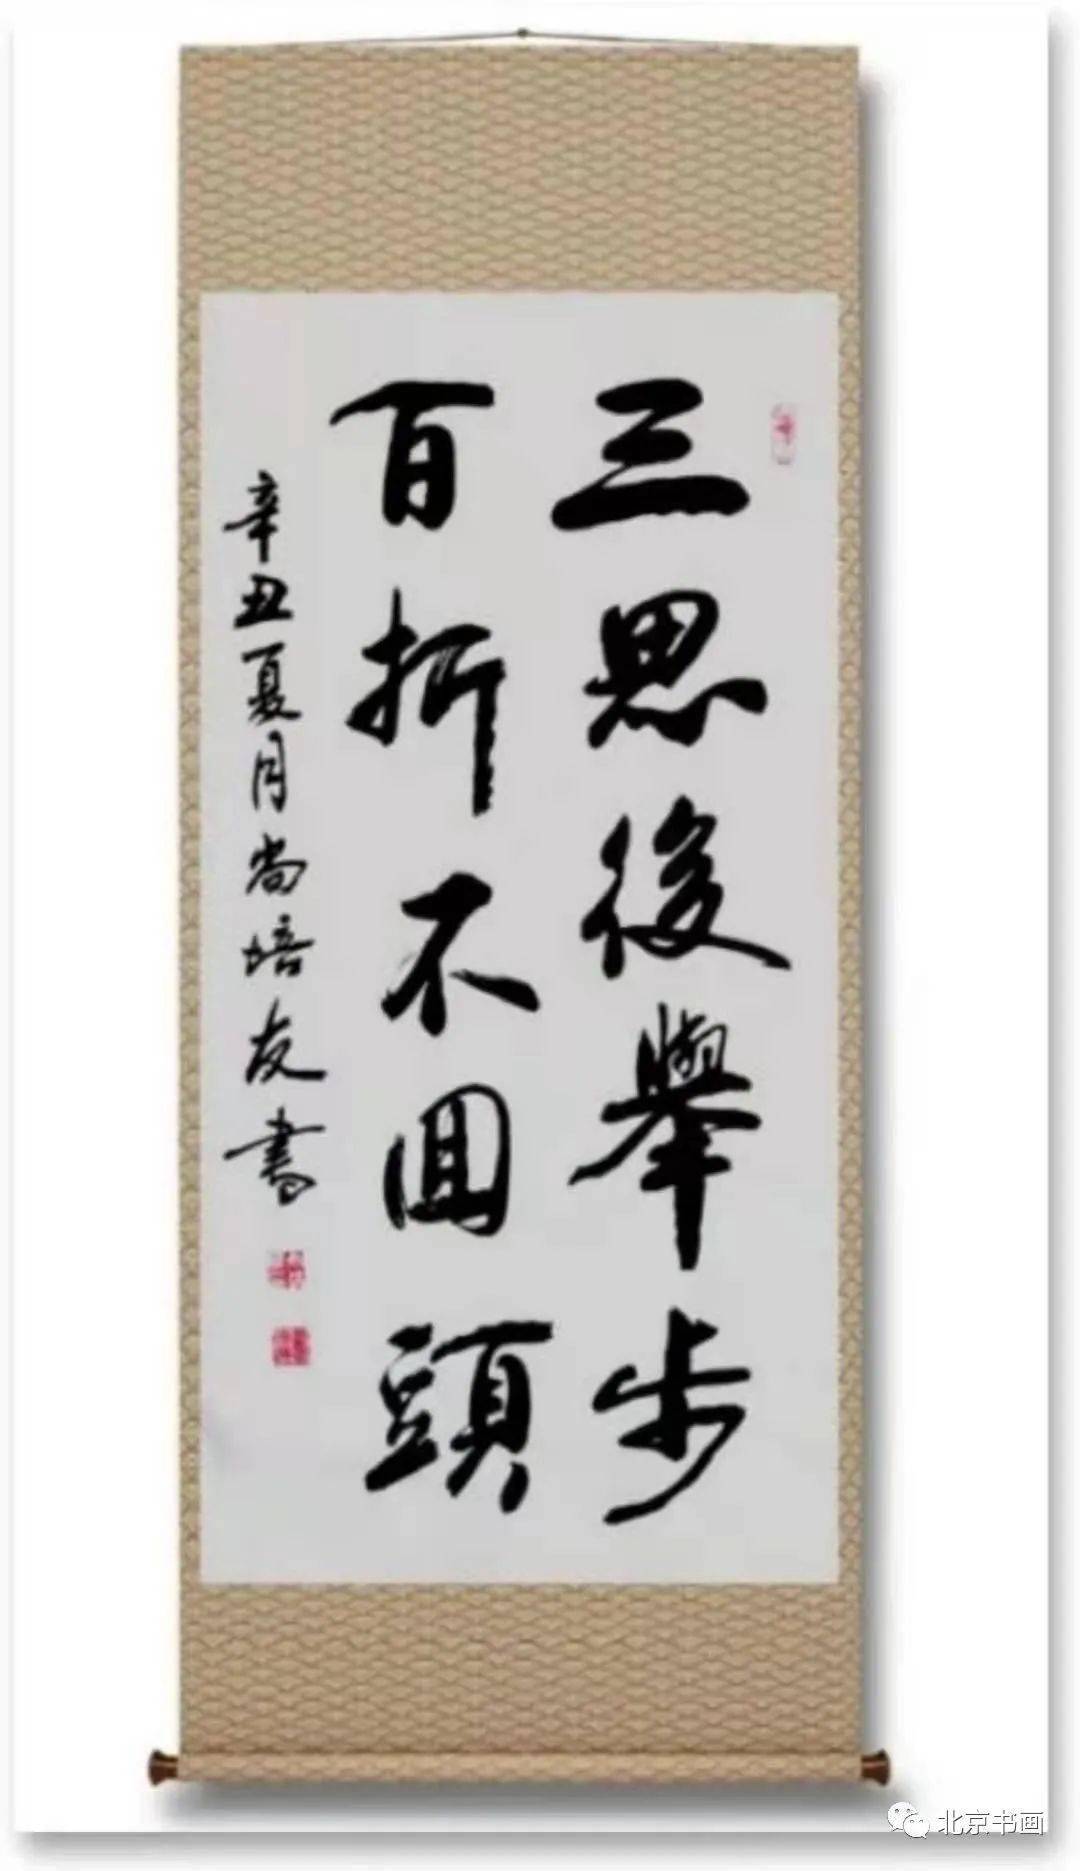 三思後舉步
百折不回頭
辛丑夏月尚培友書
北京书画